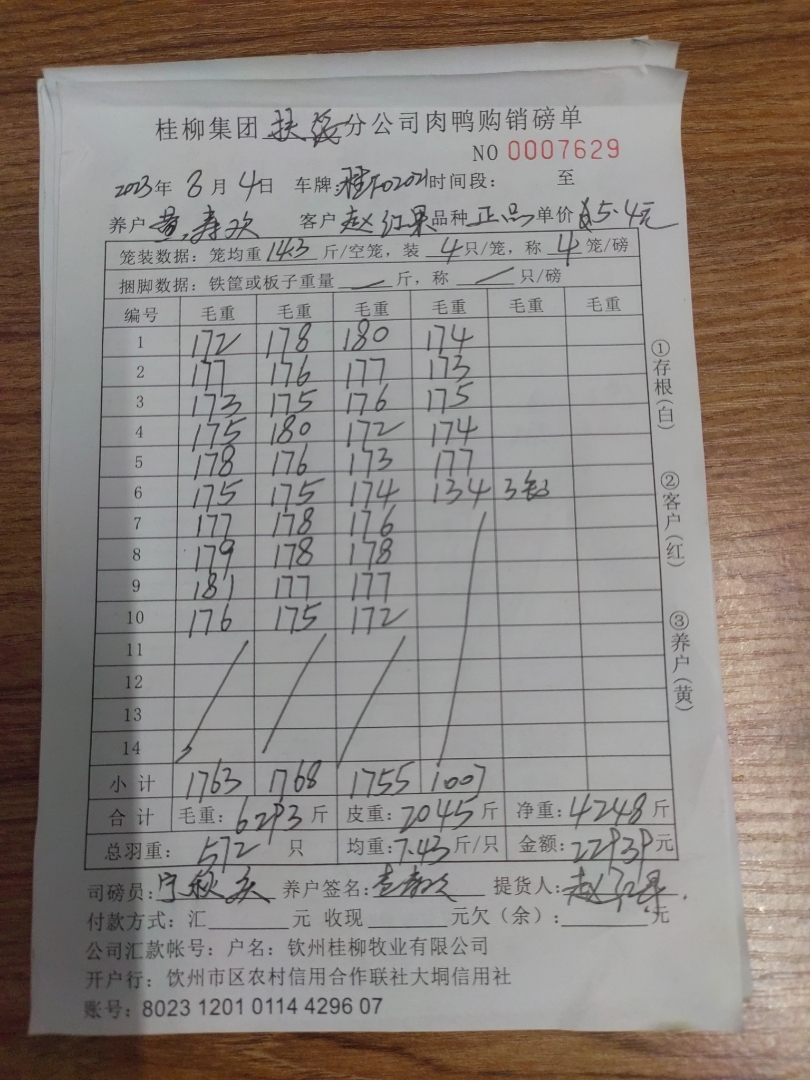 桂柳集团 扶 分公司肉鸭购销磅单
NO 0007629
2023年 8月 4日 车牌: 桂 02021 时间段: 至
养户 黄寿欢 客户 赵红果 品种 正品 单价 5.4元
笼装数据: 笼均重 14.3 斤/空笼, 装 4 只/笼, 称 4 笼/磅
捆脚数据: 铁筐或板子重量 — 斤, 称 — 只/磅
编号 毛重 毛重 毛重 毛重 毛重 毛重
1 172 178 180 174
2 177 176 177 173
3 173 175 176 175
4 175 180 172 174
5 178 176 173 177
6 175 175 174 134 3
7 177 178 176
8 179 178 178
9 181 177 177
10 176 175 172
11
12
13
14
小计 1763 1768 1755 1007
合计 毛重: 6293斤 皮重: 2045斤 净重: 4248斤
总羽重: 572 只 均重: 7.43斤/只 金额: 22939元
司磅员: 宁秋 养户签名: 黄寿欢 提货人: 赵红果
付款方式: 汇 元 收现 元欠(余): 元
公司汇款帐号: 户名: 钦州桂柳牧业有限公司
开户行: 钦州市区农村信用合作联社大垌信用社
账号: 8023 1201 0114 4296 07
①存根(白)
②客户(红)
③养户(黄)